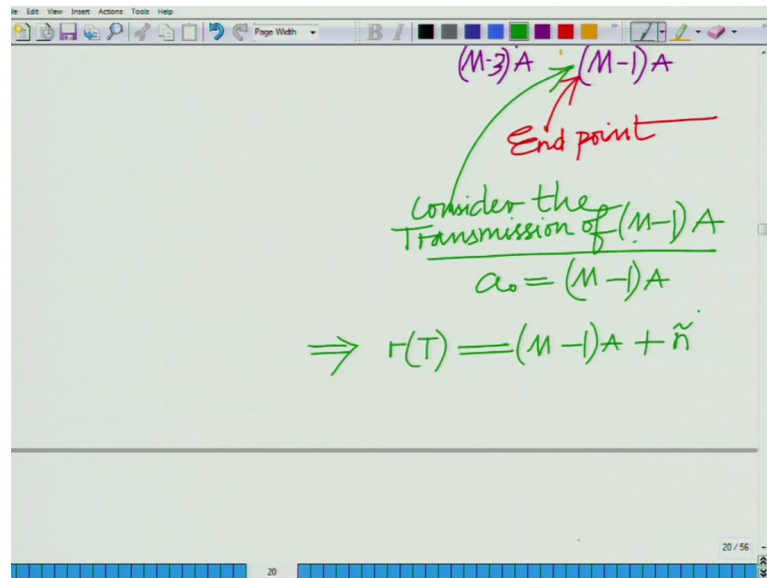 Edit View Insert Actions Tools Help
Page Width B I
(M-3)A (M-1)A
End point
Consider the
Transmission of (M-1)A
a₀ = (M-1)A
⇒ r(T) = (M-1)A + ñ
20 / 56
20